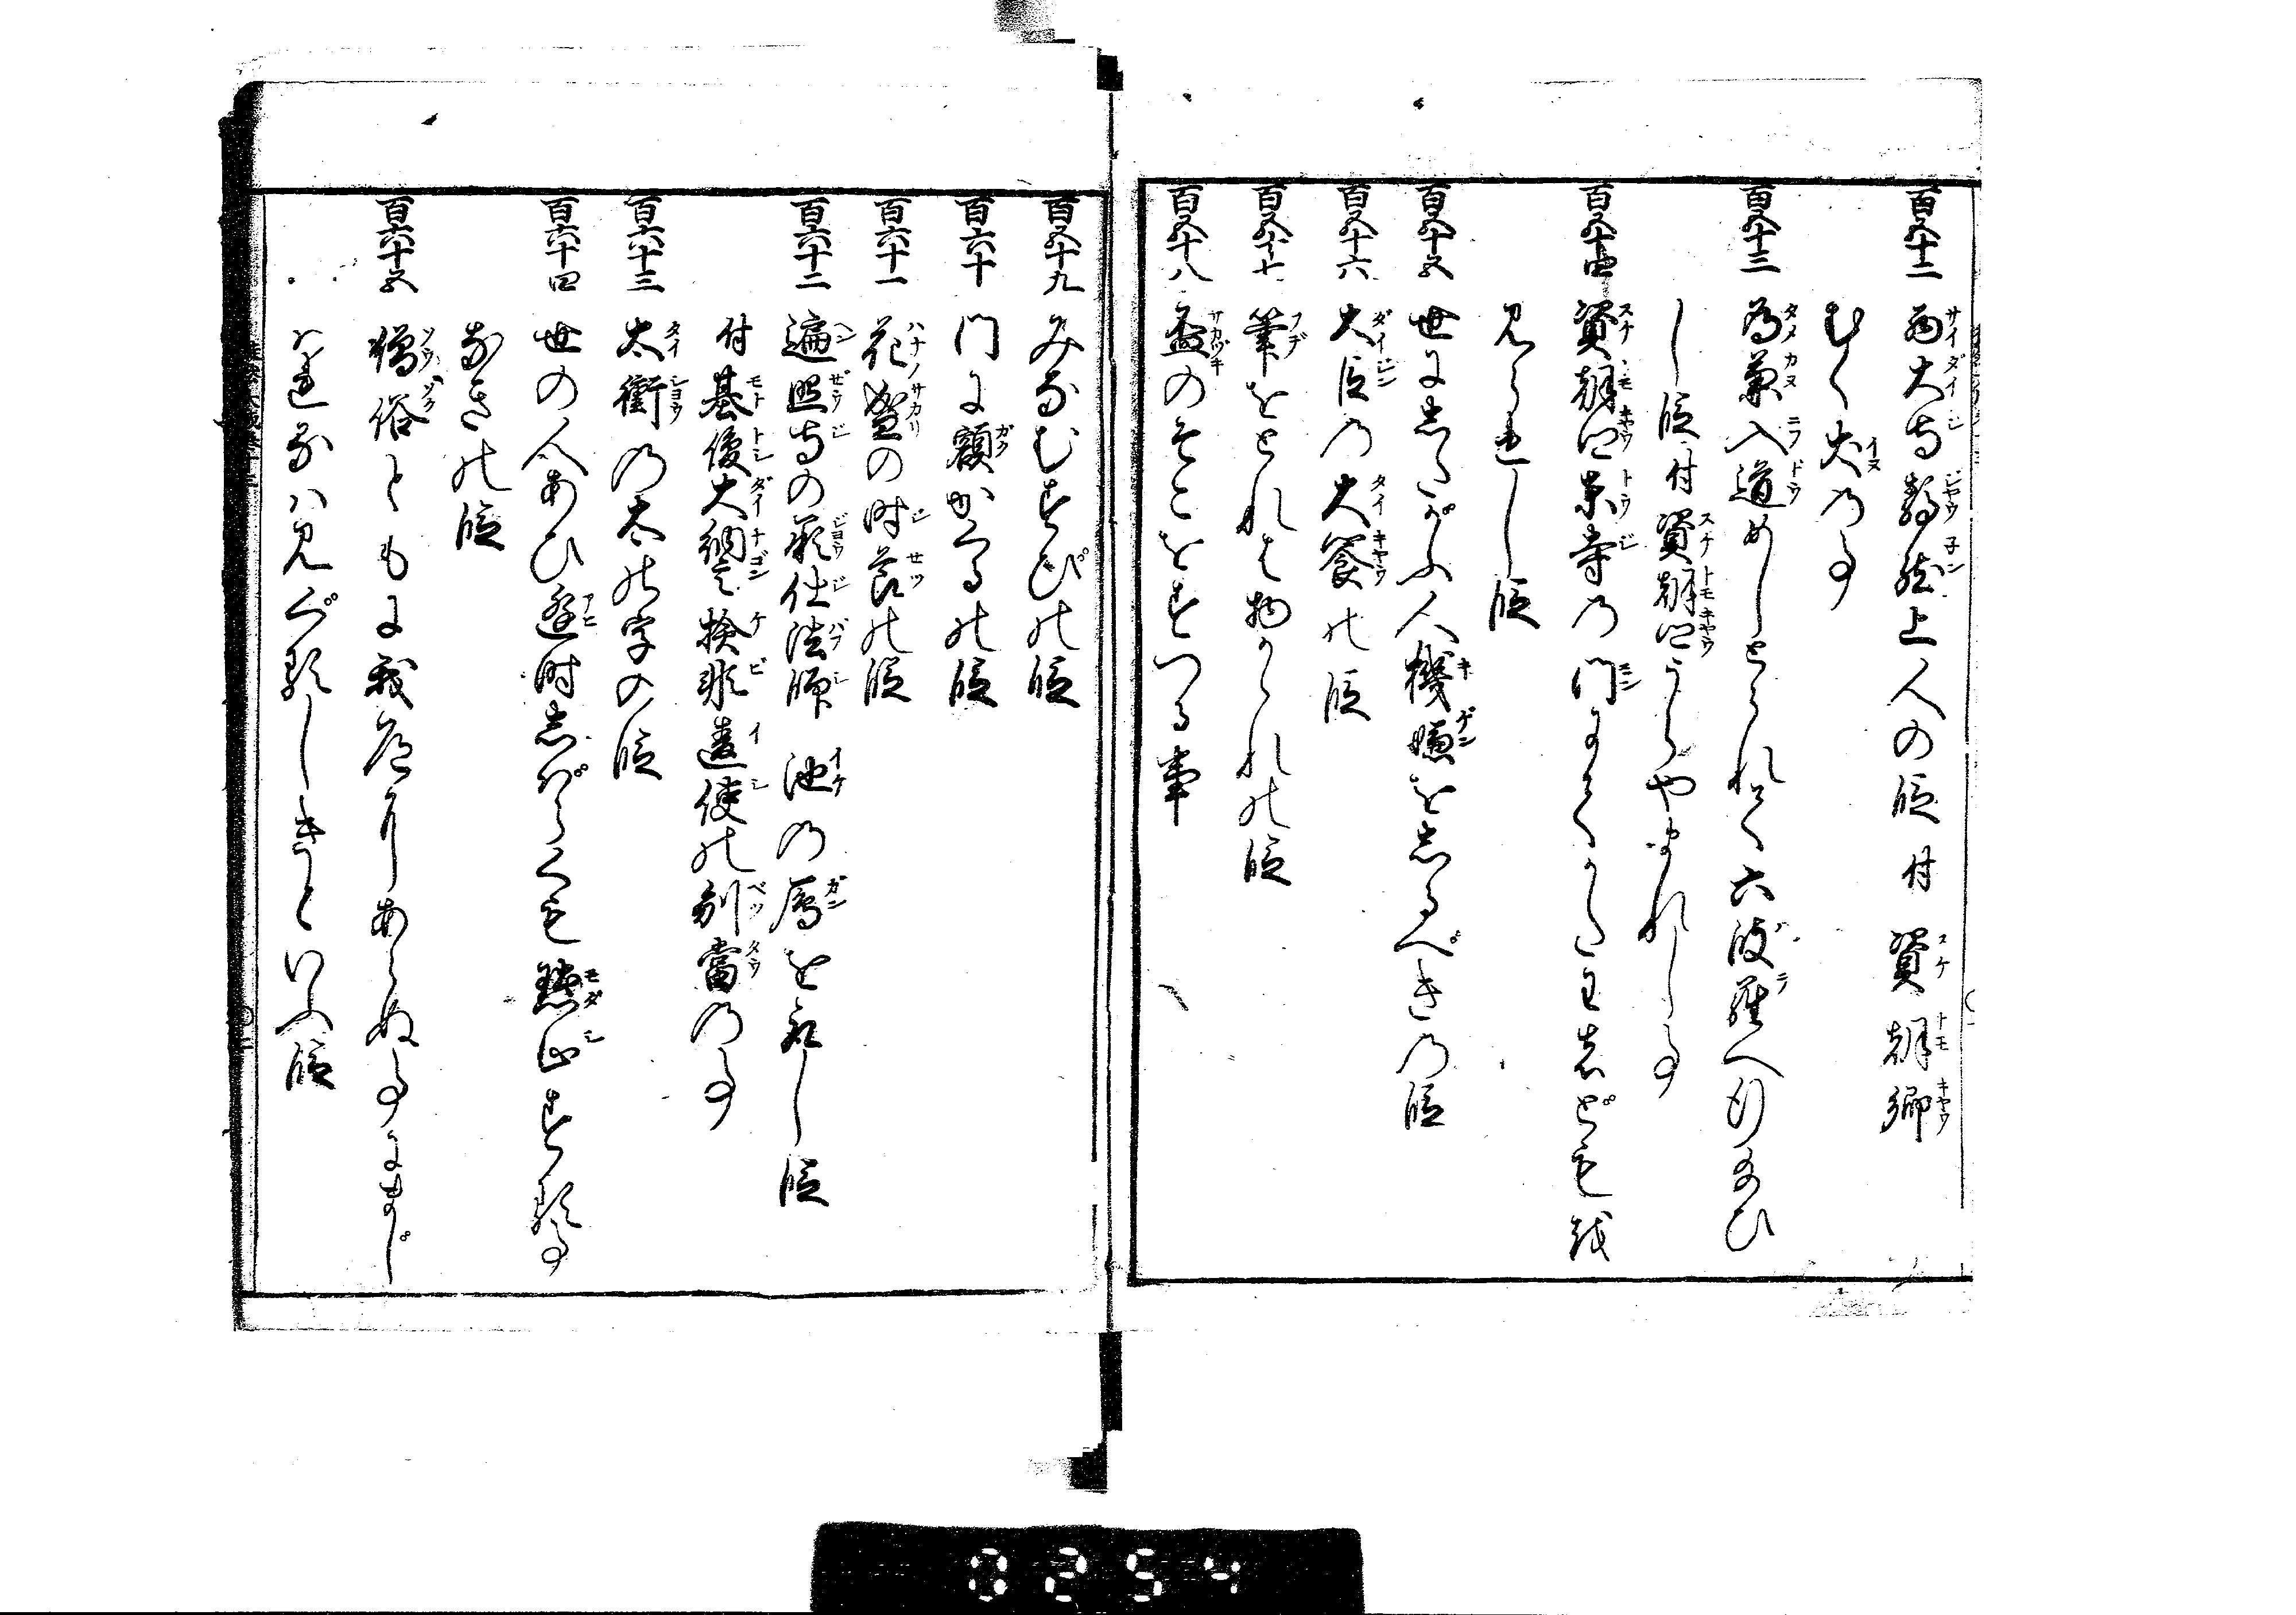 百五十二 西大寺静然上人の段 付 資朝卿
むく犬の事
百五十三 為兼入道めしとられて六波羅へ行給ひ
し段 付 資朝卿うらやまれし事
百五十四 資朝卿東寺の門にてかたわ者ども越
見られし段
百五十五 世にしたがふ人機嫌をしるべきの段
百五十六 大臣の大饗の段
百五十七 筆をとれば物かくれの段
百五十八 盃のそこをすつる事
百五十九 みなむすびの段
百六十 門に額かくるの段
百六十一 花盛の時節の段
百六十二 遍照寺の承仕法師 池の鳥を殺し段
付 基俊大納言検非違使の別當の事
百六十三 太衝の太の字の段
百六十四 世の人あひ逢時しばらくも黙止する事
なきの段
百六十五 僧俗ともに我道にあらぬ事にまじ
はれるは見ぐるしきといふ段
8254